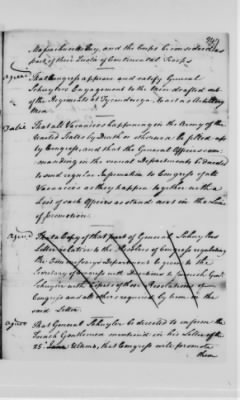 Massachusetts Bay, and the Corps be considered as
part of their Quota of Continental Troops
agreed That Congress approve and ratify General
Schuyler's Engagement to the Men drafted out
of the Regiments at Ticonderoga to act as Artillery
Men
That all Vacancies happening in the Army of the
United States by Death or otherwise be filled up
by Congress, and that the General Officers com-
manding in the several Departments be directed
to send regular Information to Congress of all
Vacancies as they happen together with a
List of such Officers as stand next in the Line
of promotion.
agreed That a Copy of that part of General Schuyler's
Letter relative to the Resolves of Congress regulating
the Departments be given to the
Secretary of Congress with Directions to furnish Genl.
Schuyler with Copies of those Resolutions of
Congress and all others required by him in the
said Letter.
agreed That General Schuyler be directed to inform the
French Gentlemen mentioned in his Letter of the
25 Ultimo, that Congress will promote
them